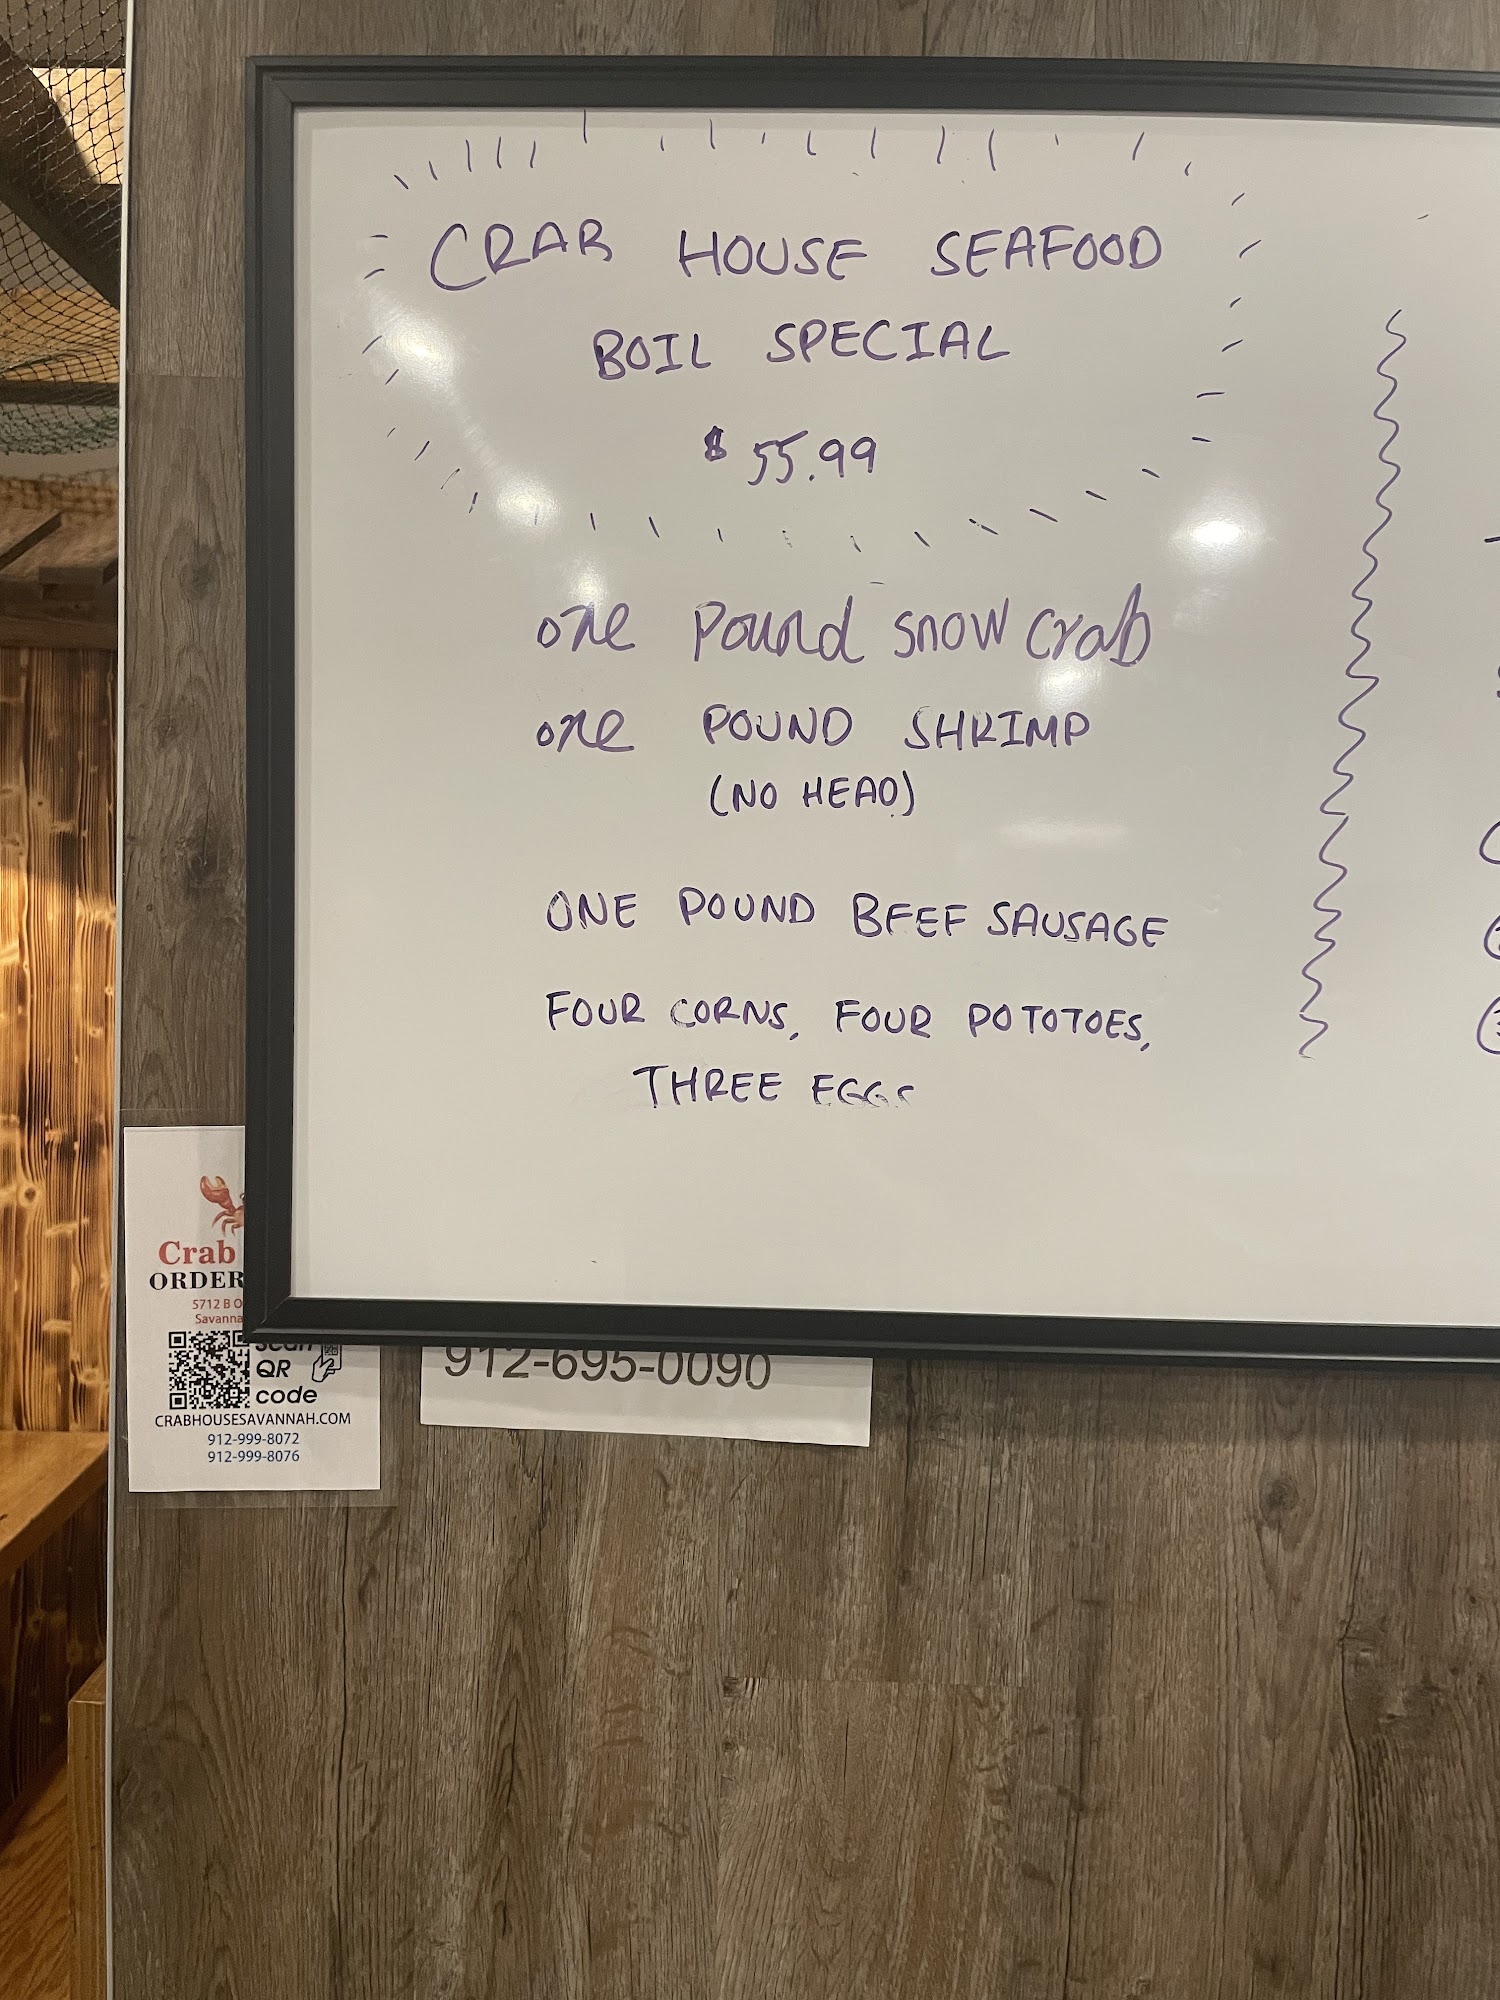 CRAB HOUSE SEAFOOD
BOIL SPECIAL
$55.99
one Pound snow crab
one POUND SHRIMP
(NO HEAD)
ONE POUND BEEF SAUSAGE
FOUR CORNS, FOUR POTOTOES,
THREE EGGS
Crab
ORDER
5712 B O
Savanna
scan
QR
code
CRABHOUSESAVANNAH.COM
912-999-8072
912-999-8076
912-695-0090